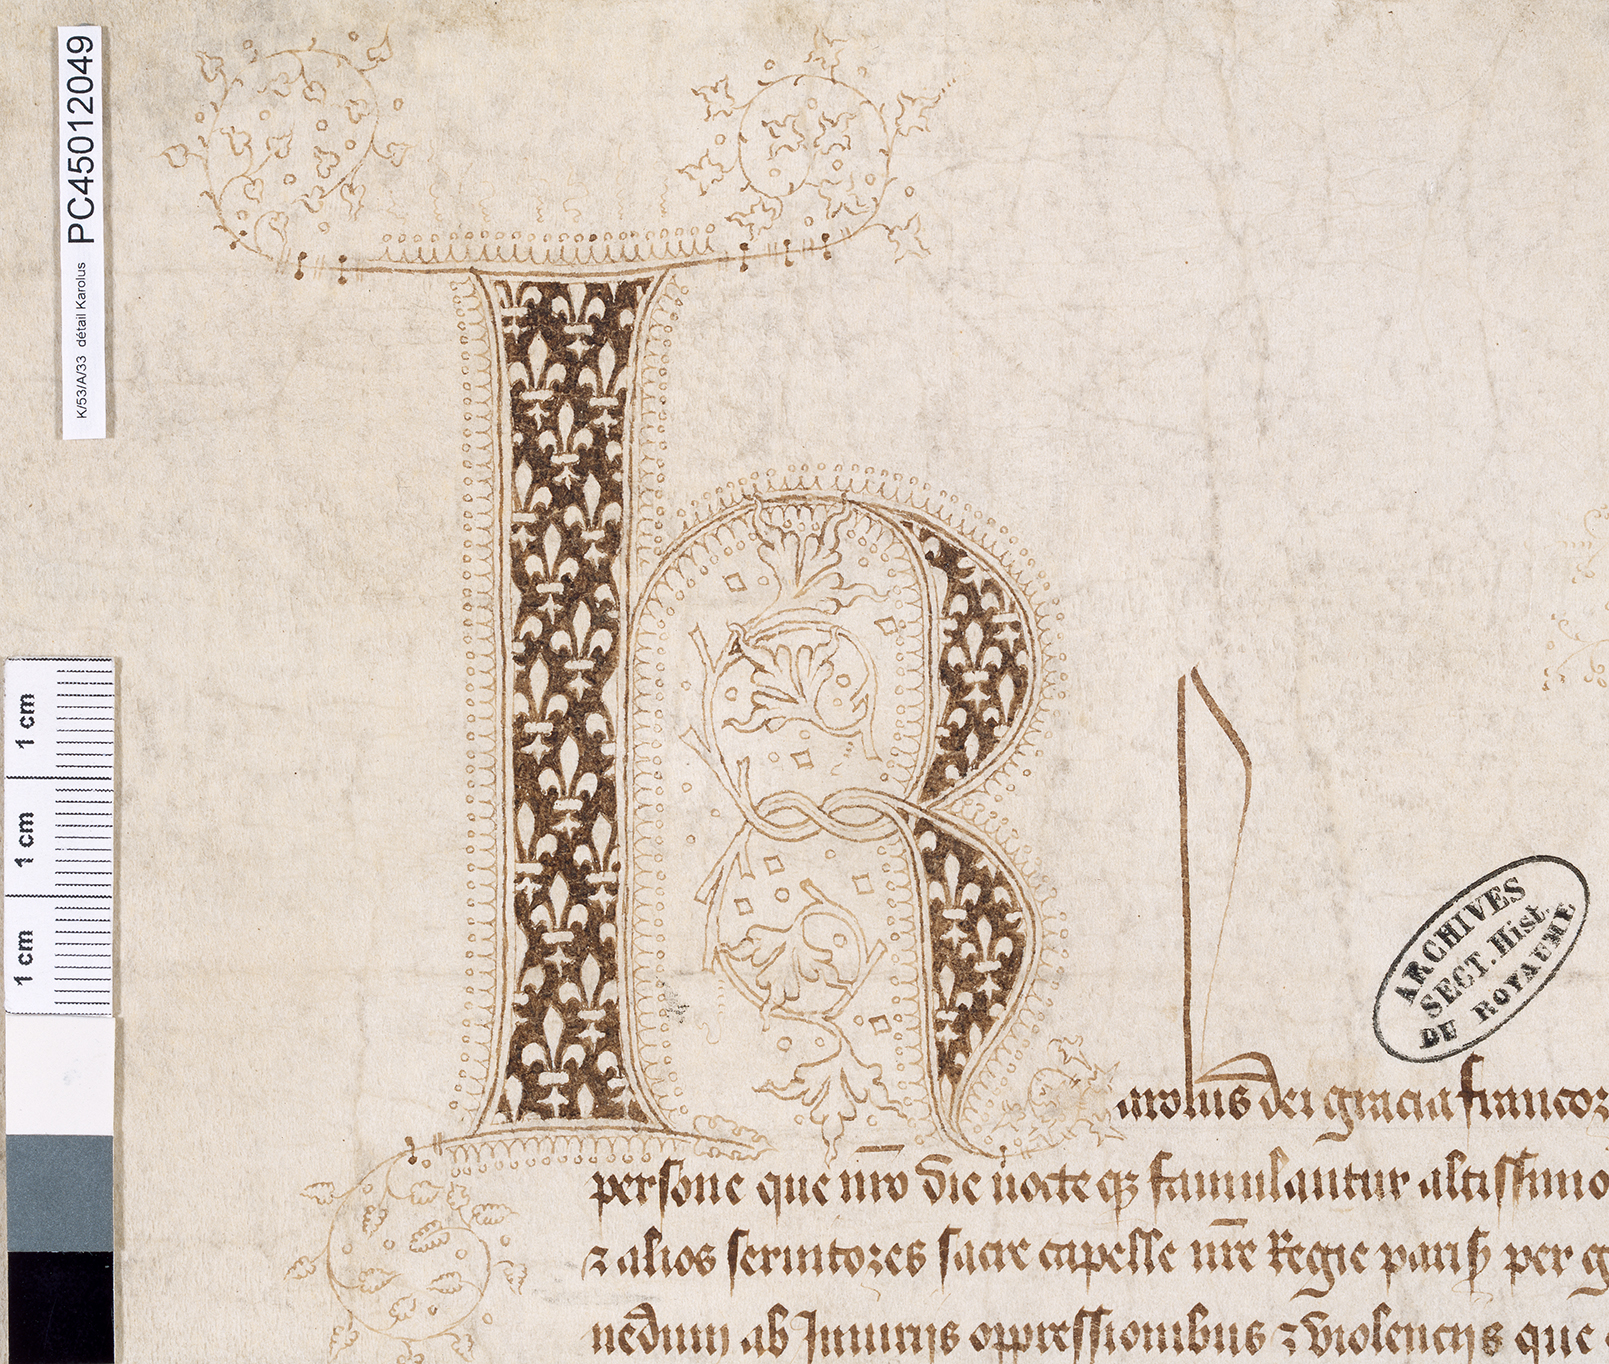 PC45012049
K/53/A/33 détail Karolus
1 cm
1 cm
1 cm
ARCHIVES
SECT. Hist.
DU ROYAUME
K
arolus dei gracia francoꝝ
persone que nr̄o die nocteqꝫ famulantur altissimo
⁊ alios seruitores sacre capelle nr̄e Regie parisꝭ per
nedum ab Iniuriis oppressionibus ⁊ violenciis que